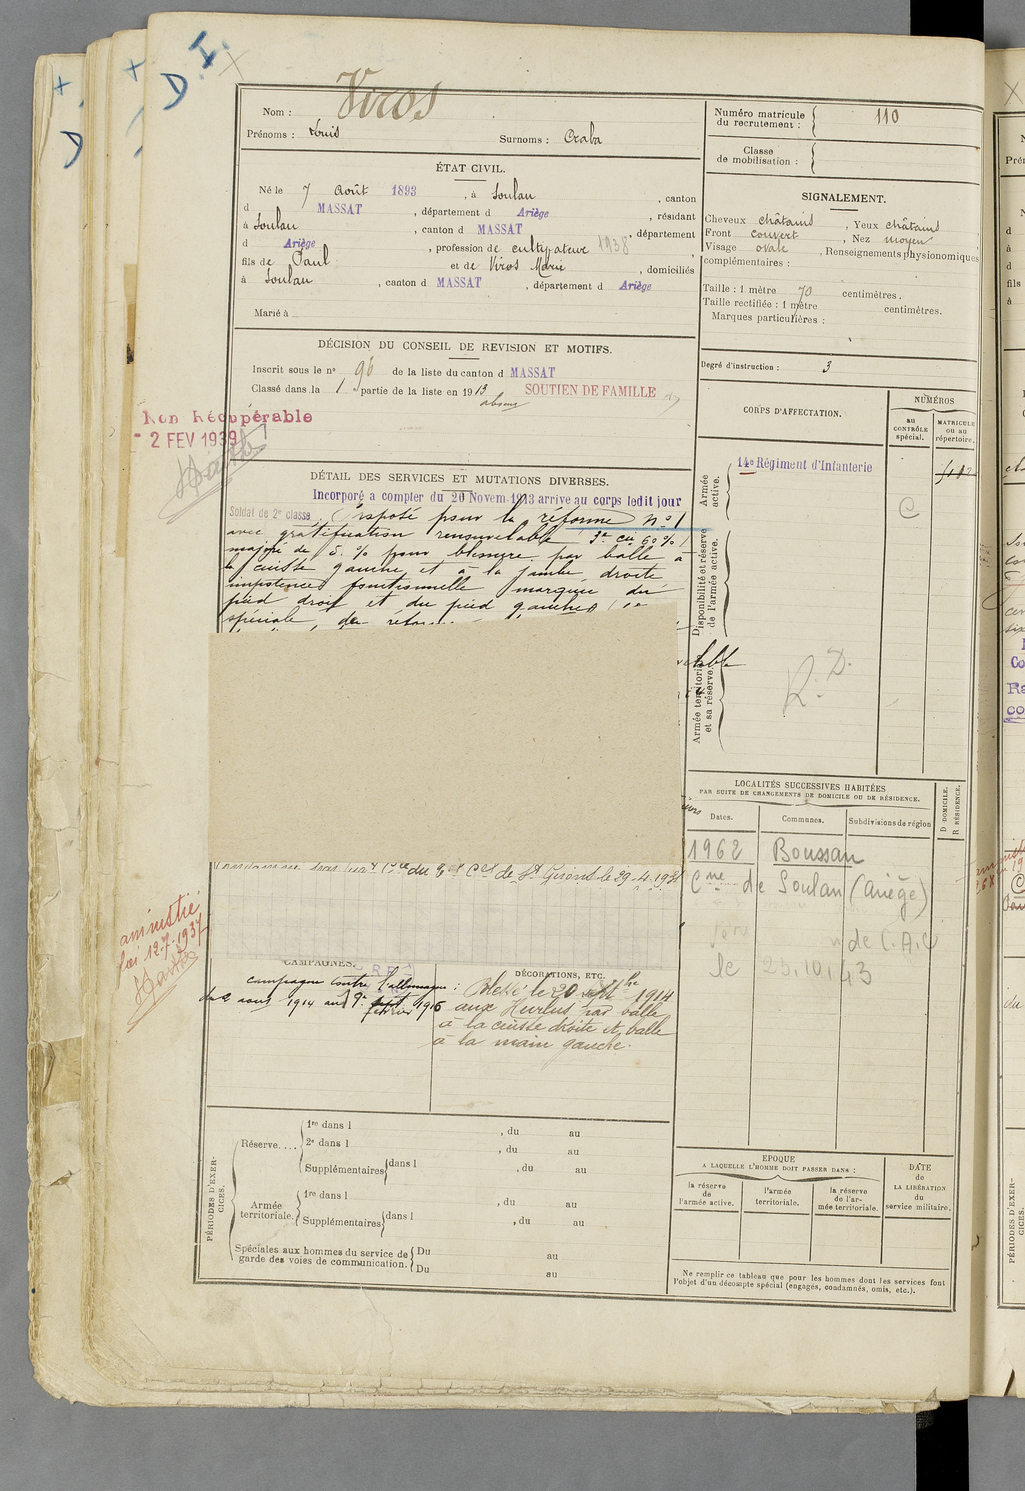 D. I.
Nom : Viros
Prénoms : Louis Surnoms : Craba
Numéro matricule du recrutement : 110
Classe de mobilisation :
ÉTAT CIVIL.
Né le 7 Août 1893, à Soulan, canton
d MASSAT, département d Ariège, résidant
à Soulan, canton d MASSAT, département
d Ariège, profession de cultivateur 1938
fils de Paul et de Viros Marie, domiciliés
à Soulan, canton d MASSAT, département d Ariège
Marié à
SIGNALEMENT.
Cheveux châtains, Yeux châtains
Front couvert, Nez moyen
Visage ovale, Renseignements physionomiques
complémentaires :
Taille : 1 mètre 70 centimètres.
Taille rectifiée : 1 mètre centimètres.
Marques particulières :
Degré d'instruction : 3
DÉCISION DU CONSEIL DE REVISION ET MOTIFS.
Inscrit sous le n° 96 de la liste du canton d MASSAT
Classé dans la 1 partie de la liste en 1913 SOUTIEN DE FAMILLE
absent
Non Récupérable
- 2 FEV 1939
CORPS D'AFFECTATION.
NUMÉROS
au CONTRÔLE spécial.
MATRICULE ou au répertoire.
Armée active.
14e Régiment d'Infanterie
Disponibilité et réserve de l'armée active.
Armée territoriale et sa réserve.
R. D.
C
DÉTAIL DES SERVICES ET MUTATIONS DIVERSES.
Incorporé a compter du 20 Novem. 1913 arrive au corps ledit jour
Soldat de 2e classe. Proposé pour la réforme N° 1
avec gratification renouvelable 3e cie 60 %
majoré de 5 % pour blessure par balle à
la cuisse gauche et à la jambe droite
impotence fonctionnelle marquée du
pied droit et du pied gauche
spéciale de
du Cel de St Girons le 29.4.1931
LOCALITÉS SUCCESSIVES HABITÉES
PAR SUITE DE CHANGEMENTS DE DOMICILE OU DE RÉSIDENCE.
Dates. Communes. Subdivisions de région
D DOMICILE. R RÉSIDENCE.
1962 Boussan
Cne de Soulan (Ariège)
de C.A.C
le 25.10.43
amnistié
loi 12.7.1937
CAMPAGNES.
campagne contre l'allemagne :
du 2 aout 1914 au 9 février 1916
DÉCORATIONS, ETC.
Blessé le 20 septbre 1914
aux Hurlus par balle
à la cuisse droite et balle
à la main gauche.
PÉRIODES D'EXERCICES.
Réserve....
1re dans l , du au
2e dans l , du au
Supplémentaires dans l , du au
Armée territoriale.
1re dans l , du au
Supplémentaires dans l , du au
Spéciales aux hommes du service de garde des voies de communication.
Du au
Du au
ÉPOQUE
A LAQUELLE L'HOMME DOIT PASSER DANS :
la réserve de l'armée active.
l'armée territoriale.
la réserve de l'armée territoriale.
DATE de LA LIBÉRATION du service militaire.
Ne remplir ce tableau que pour les hommes dont les services font
l'objet d'un décompte spécial (engagés, condamnés, omis, etc.).